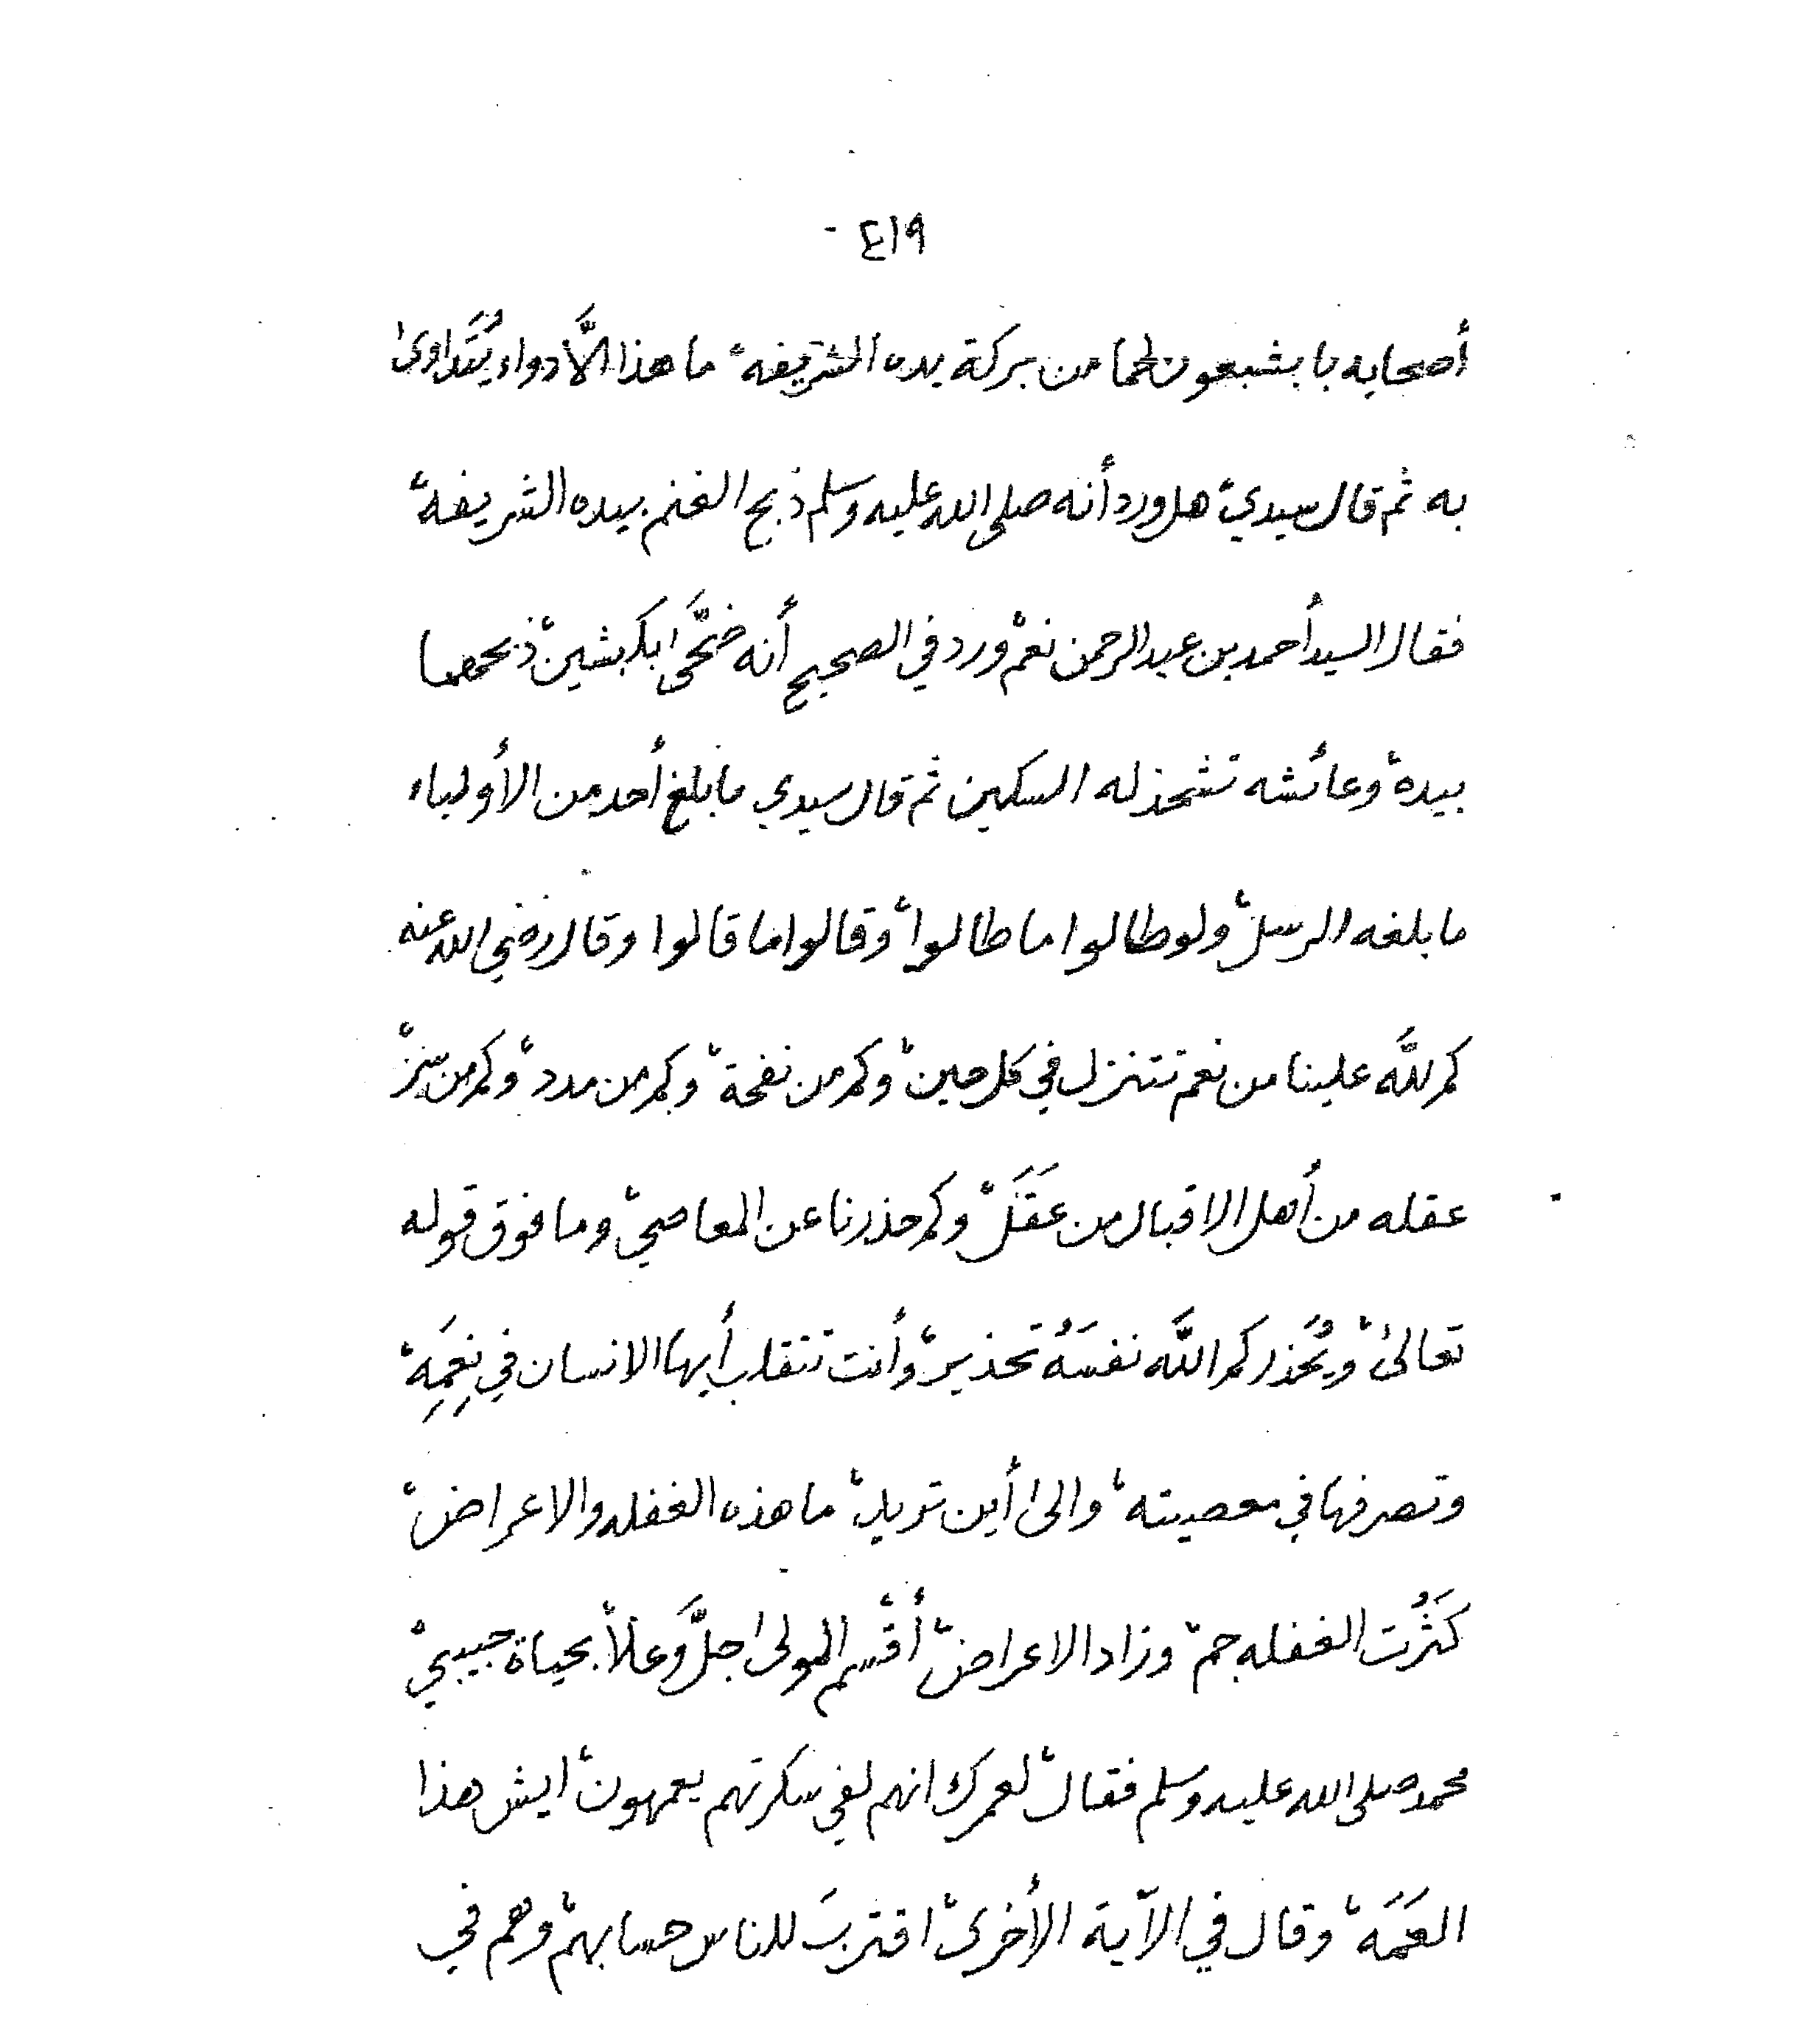 ٤١٩
أصحابه با يشبعون لحما من بركة يده الشريفه، ما هذا الَّا دواء يُتَداوىٰ
به ثم قال سيدي، هل ورد أنه صلى الله عليه وسلم ذبح الغنم بيده الشريفه،
فقال السيد أحمد بن عبد الرحمن نعم، ورد في الصحيح أنه ضَحَّىٰ بكبشين، ذبحهما
بيده، وعائشه تشحذ له السكين ثم قال سيدي ما بلغ أحد من الأولياء
ما بلغه الرسل، ولو طالوا ما طالوا، وقالوا ما قالوا وقال رضي الله عنه
كم للَّه علينا من نعم تتنزل في كل حين، وكم من نفحة، وكم من مدد، وكم من سِرّ،
عقله من أهل الاقبال من عَقَلَ، وكم حذرنا عن المعاصي، وما فوق قوله
تعالىٰ، ويُحَذركم اللَّه نفسَهُ تحذير، وأنت تتقلب أيها الانسان في نِعَمِهِ،
وتصرفها في معصيته، والىٰ أين تريد، ما هذه الغفله والاعراض،
كَثُرَت الغفله جم، وزاد الاعراض، أقْسم المولىٰ جلَّ وعَلا، بحياة حبيبي،
محمد صلى الله عليه وسلم فقال، لعمرك انهم لفي سكرتهم يعمهون، ايش هذا
العَمَهَ، وقال في الآية الأخرىٰ، اقتربَ للناس حسابهم، وهم في